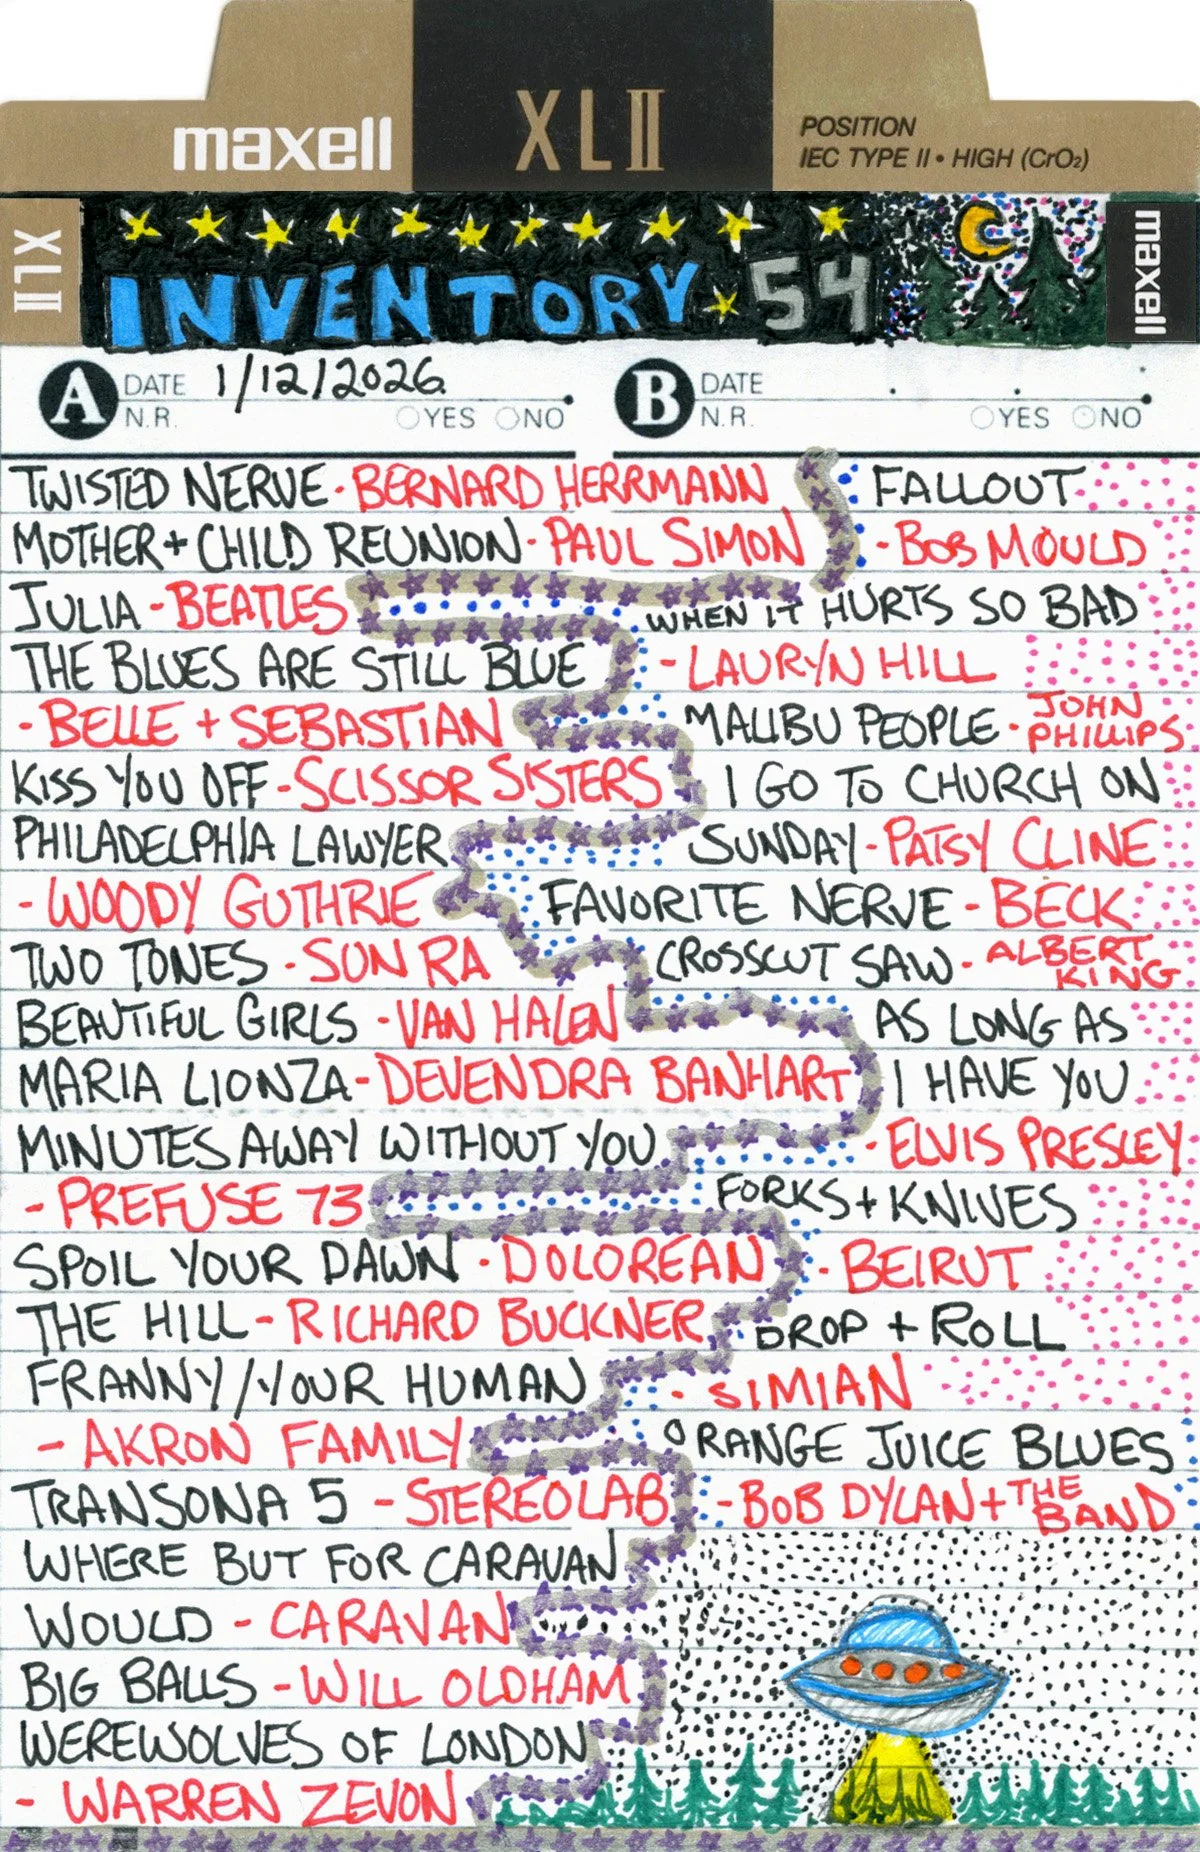 maxell
XLII
POSITION
IEC TYPE II • HIGH (CrO₂)
XLII
INVENTORY 54
maxell
A DATE 1/12/2026
N.R. YES NO
B DATE
N.R. YES NO
TWISTED NERVE - BERNARD HERRMANN
MOTHER + CHILD REUNION - PAUL SIMON
JULIA - BEATLES
THE BLUES ARE STILL BLUE
- BELLE + SEBASTIAN
KISS YOU OFF - SCISSOR SISTERS
PHILADELPHIA LAWYER
- WOODY GUTHRIE
TWO TONES - SUN RA
BEAUTIFUL GIRLS - VAN HALEN
MARIA LIONZA - DEVENDRA BANHART
MINUTES AWAY WITHOUT YOU
- PREFUSE 73
SPOIL YOUR DAWN - DOLOREAN
THE HILL - RICHARD BUCKNER
FRANNY/YOUR HUMAN
- AKRON FAMILY
TRANSONA 5 - STEREOLAB
WHERE BUT FOR CARAVAN
WOULD - CARAVAN
BIG BALLS - WILL OLDHAM
WEREWOLVES OF LONDON
- WARREN ZEVON
FALLOUT
- BOB MOULD
WHEN IT HURTS SO BAD
- LAURYN HILL
MALIBU PEOPLE - JOHN
PHILLIPS
I GO TO CHURCH ON
SUNDAY - PATSY CLINE
FAVORITE NERVE - BECK
CROSSCUT SAW - ALBERT
KING
AS LONG AS
I HAVE YOU
- ELVIS PRESLEY
FORKS + KNIVES
- BEIRUT
DROP + ROLL
- SIMIAN
ORANGE JUICE BLUES
- BOB DYLAN + THE
BAND